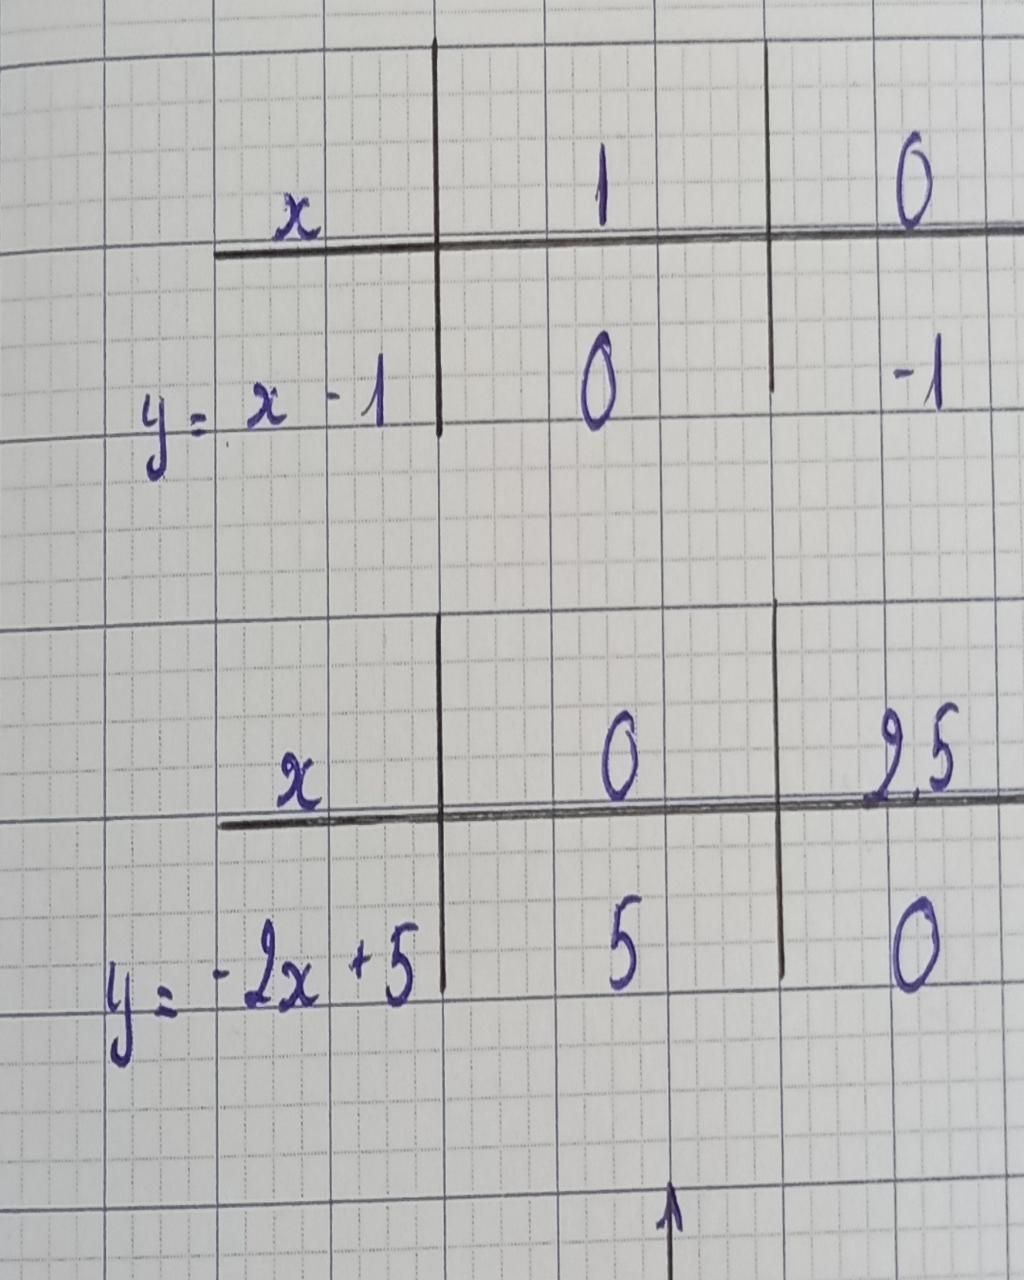 x 1 0
y = x - 1 0 -1
x 0 2,5
y = -2x + 5 5 0